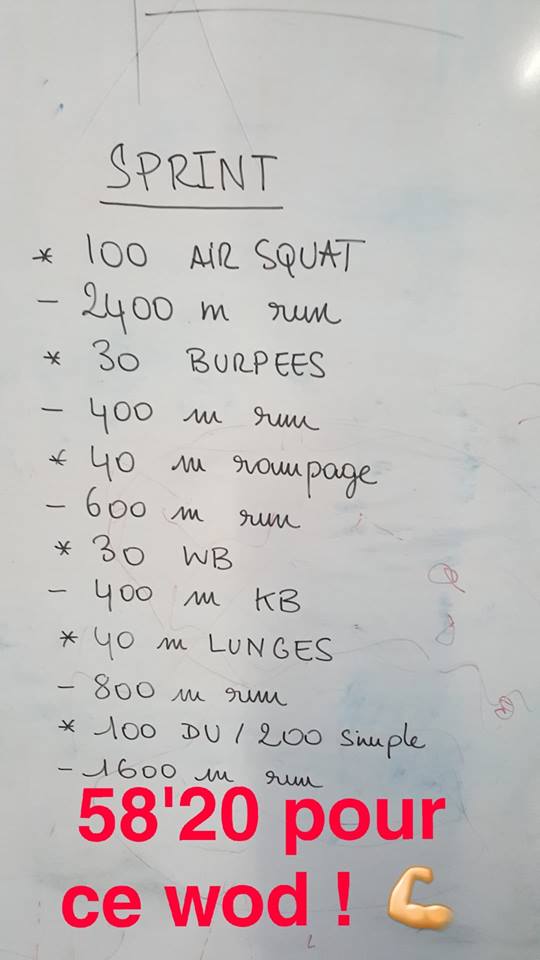 SPRINT
* 100 AIR SQUAT
- 2400 m run
* 30 BURPEES
- 400 m run
* 40 m rampage
- 600 m run
* 30 WB
- 400 m KB
* 40 m LUNGES
- 800 m run
* 100 DU / 200 simple
- 1600 m run
58'20 pour
ce wod ! 💪